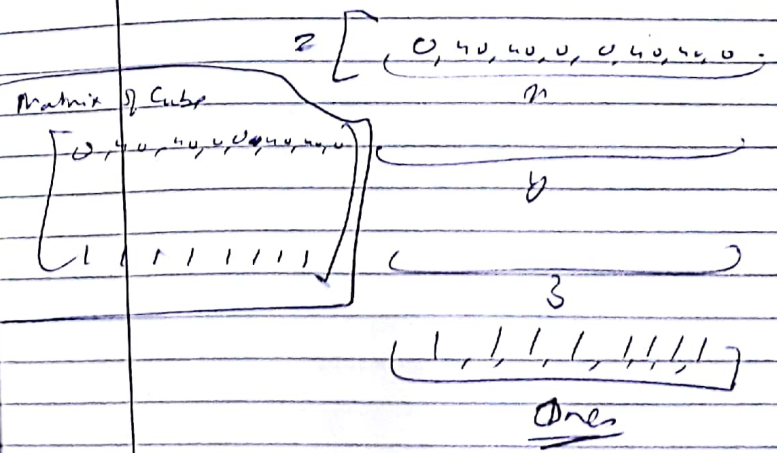 2 [ 0, 40, 40, 0, 0, 40, 40, 0
n
Matrix of Cube
[ 0, 40, 40, 0, 0, 40, 40, 0 ]
y
1 1 1 1 1 1 1 1
3
1, 1, 1, 1, 1, 1, 1, 1
Ones